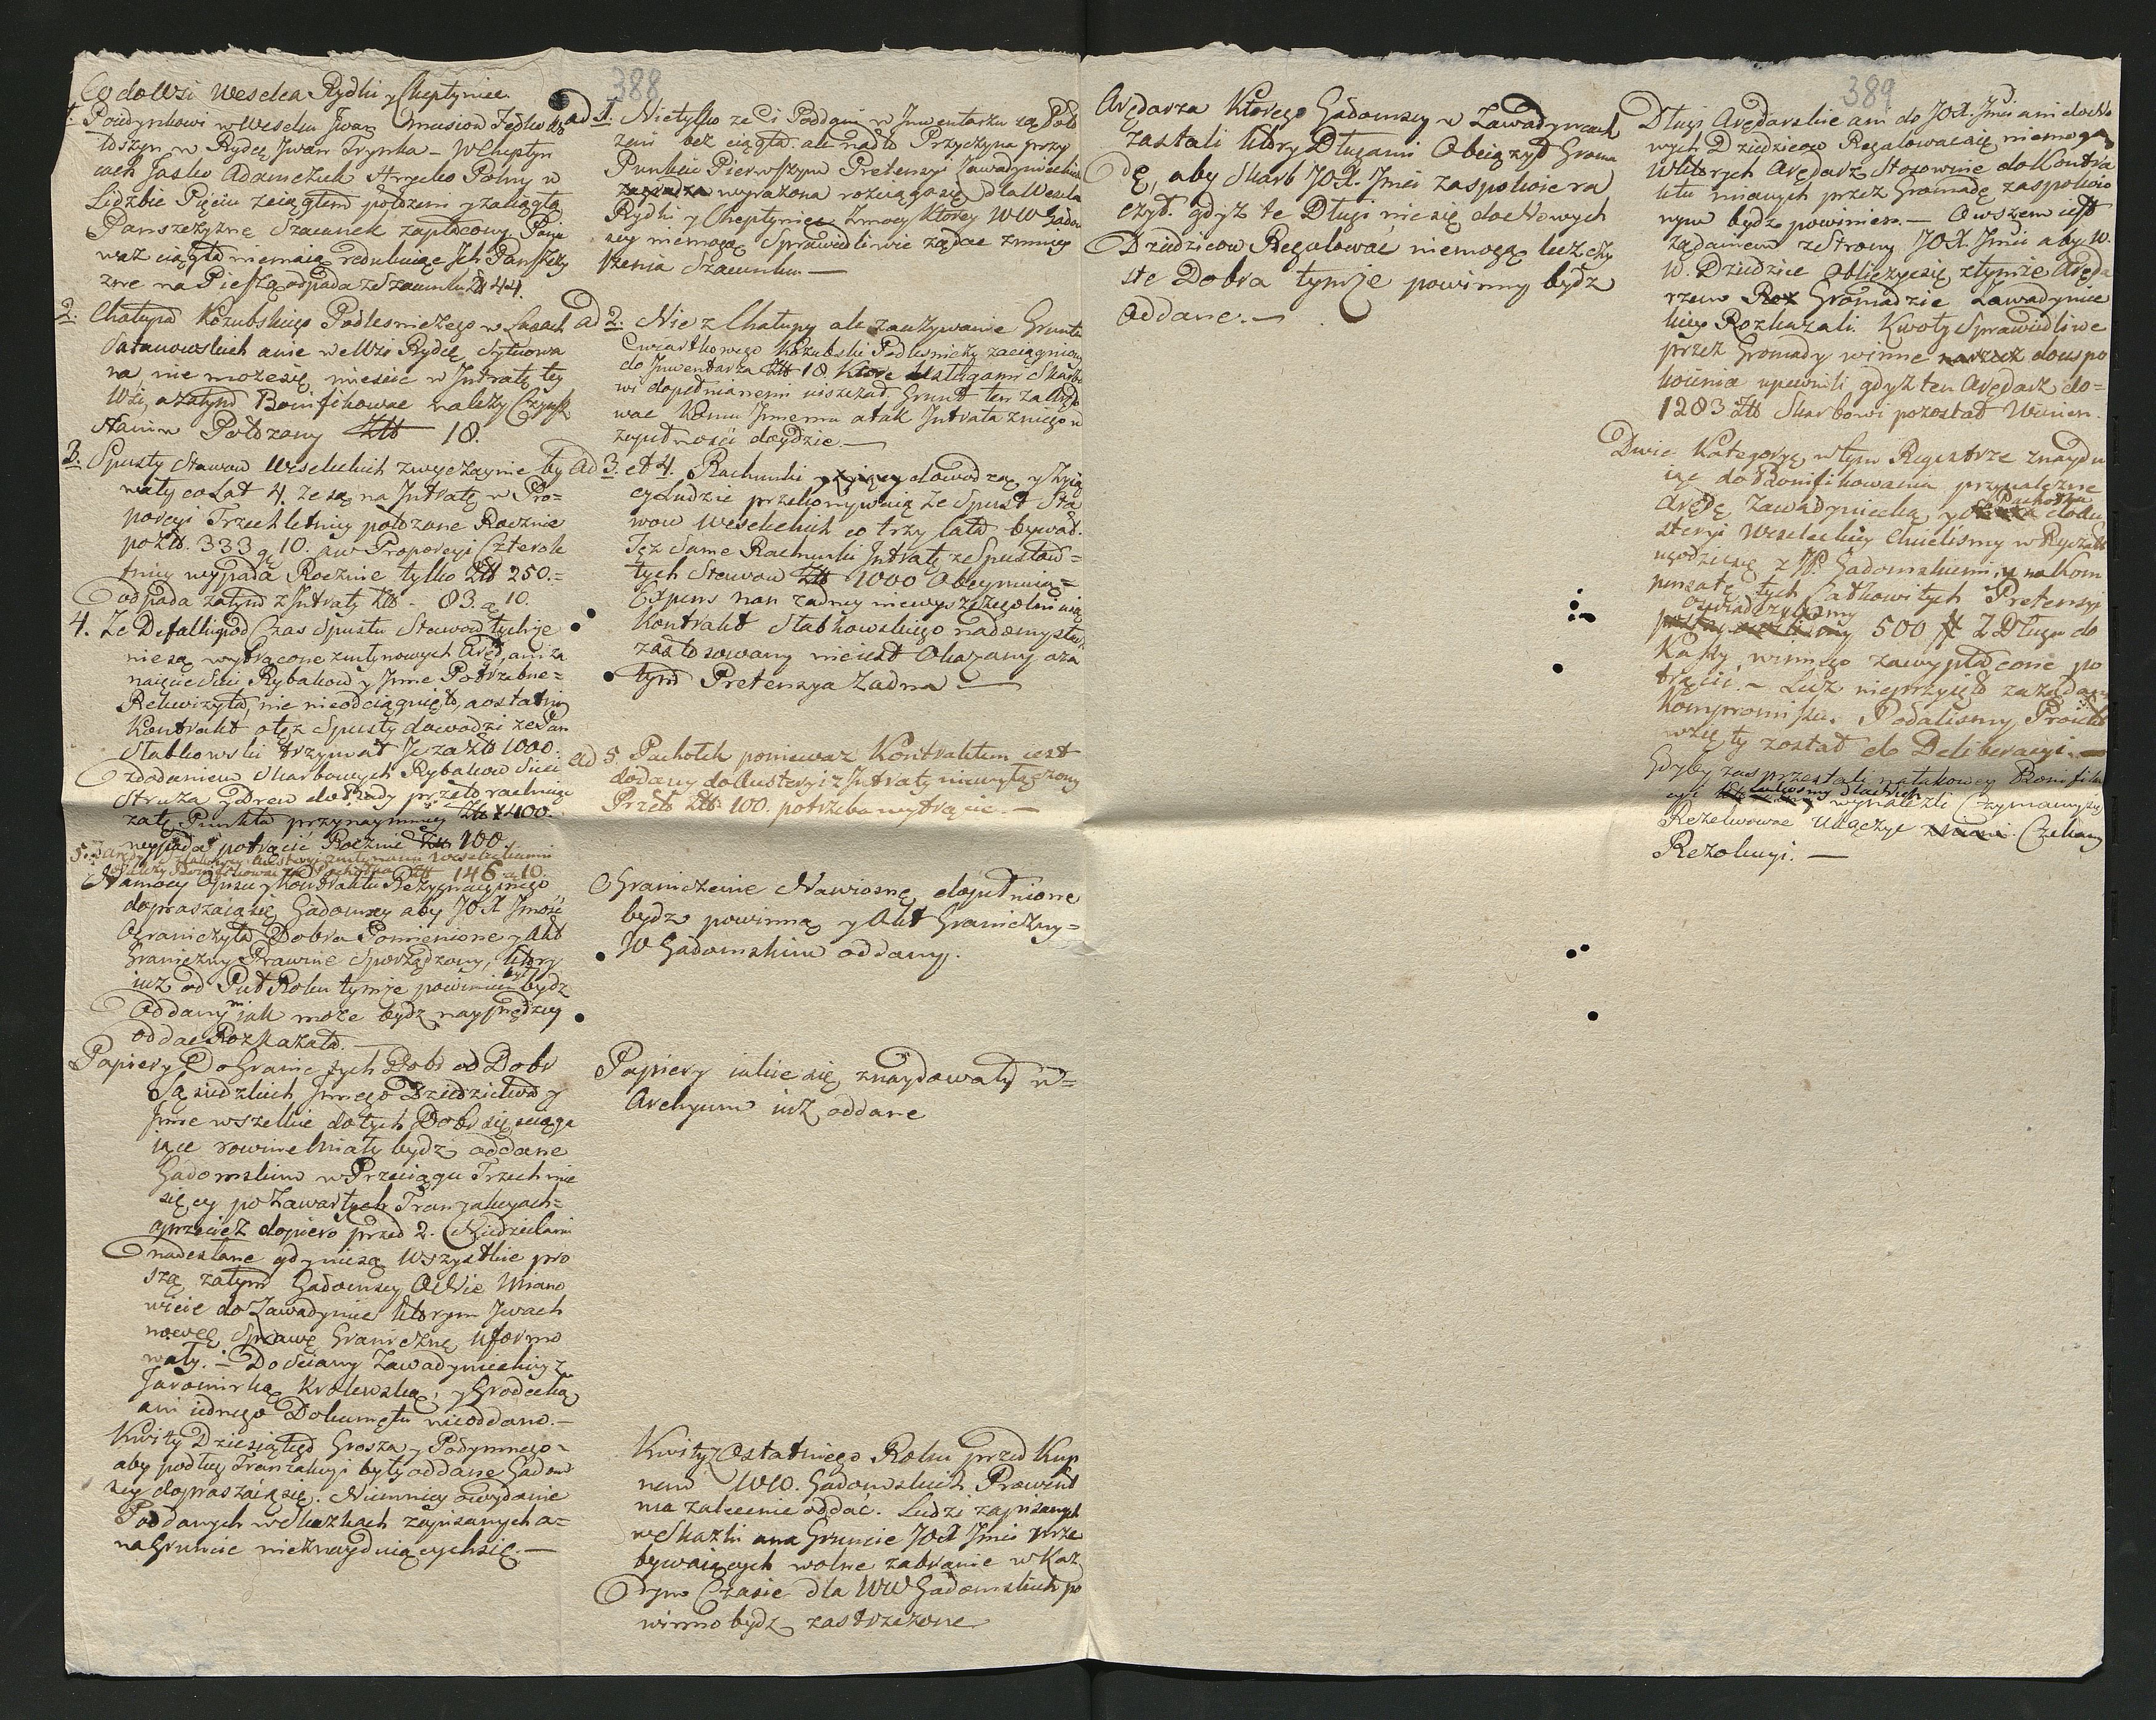 388
Co do Wsi Weselca Rydki y Cheptyniec
1. Poiedynkowi w Weselcu Iwan
w Rydcę Iwan Hrynka – W Cheptyn
cach Jasko Adamczuk Hrycko Polny w
Lidzbie Pięciu zciągłem położeni y zaciągłą
Panszczyznę Szacunek zapłacony Ponie
waż ciągła niemaią redukuiąc Ich Panszczy
znę na Pieszą odpada ze Szacunku 44.
2. Chałupa Kozubskiego Podlesniczego w Lasach
Satanowskich a nie we Wsi Rydcę sytuowa
na nie może się miescić w Intratę tey
Wsi, a zatym Bonifikować należy Czynsz
Stanim Położony Złł 18.
3. Spusty Stawow Weseleckich zwyczaynie by
wały co Lat 4. że są na Intratę w Pro=
porcyi Trzechletniey położone Rocznie
po Złł. 333 g 10. a w Proporcyi Cztero le
tniey wypada Rocznie tylko Złł 250.=
odpada zatym z Intraty Złł - 83. g 10.
4. Ze Defalki pod Czas Spustu Stawow tychże
nie są wytrącone z młynowych Aręd, ani za
naięcie Sieci Rybakow y Inne Potrzebne=
Rekwizyta, nic nie odciągnięto, a ostatni
Kontrakt o tęz Spusty dowodzi że Pan
Stabkowski trzymał Je za Złł 1000.
z dodaniem Skarbowych Rybakow Sieci
Struża y drew do Sady przeto rachuiąc
za te Punkta przynaymniey Złł 400.
wypada potrącić Rocznie Złł 100.
5. Zaręd
146 g 10.
Na mocy Opisu y Kontraktu Rezygnacyinego
dopraszaią się Gadomscy aby JOX Jmość
Ograniczyła Dobra Pomienione y Akt
Graniczny Prawnie Sporządzony, ktory
iuż od Puł Roku tymże powinien był bydz
Oddany, jak może bydz nayprędzey
oddać Rozkazała.
Papiery Do Granic tych Dobr od Dobr
Sąsiedzkich Innego Dziedzictwa y
Inne wszelkie do tych Dobr się sciąga
iące rowinie miały bydź oddane
Gadomskim w Przeciągu Trzech mie
sięcy po Zawartych Tranzakcyach=
a przecież dopiero przed 2. Niedzielami
nadesłane gdy nie są Wszystkie pro
szą zatym Gadomscy O te Nie Miano
wicie do Zawadyniec ktorym Iwach
nowcę Sprawę Graniczną uformo
wały. – Do Sciany Zawadynieckiey z
Jaromirką Krolewską, y Grodecką
ani iednego Dokumętu nieoddano. –
Kwity Dziesiątego Grosza y Podymnego –
aby podług Tranzakcyi były oddane Gadom
scy dopraszaią się. Niemniey o wydanie
Poddanych w Skazkach zapisanych a=
na Gruncie nieznayduiących się. –
ad 1. Nietylko że Ci Poddani w Inwentarzu są Poło
żeni bez ciągła. ale nadto Przyczyna przy
Punkcie Pierwszym Pretensyi Zawadynieckich
wyrażona rozciąga się dla Weselca
Rydki y Cheptyniec z mocy ktorey WW Gadom
scy niemogą Sprawiedliwie żądać zmniey
szenia Szacunku. –
ad 2. Nie z Chałupy ale za używanie Gruntu
Cwiartkowego Kozubski Podlesniczy zaciągniony
do Inwentarza Złł 18 ktore Usługami Skarbo
wi dopełnianemi uiszczał, Grunt ten za
wać komu Innemu a tak Intrata z niego w
zupełności doydzie. –
ad 3. et 4. Rachunki dowodzą, y żyią
cy Ludzie przekonywaią że Spust Sta
wow Weseleckich co trzy lata bywał.
Też Same Rachunki Intratę ze Spustow=
tych Stawow Złł 1000 Obeymuią=
Expens nan żadney niewyszczegulniaią
Kontrakt Stabkowskiego nadomysłu
zastosowany nieiest Okazany a za
tym Pretensya Żadna –
ad 5. Pachołek ponieważ Kontraktem iest
dodany do Austeryi z Intraty niewyłączony
Przeto Złł 100. potrzeba wytrącić. –
Ograniczenie Na wiosnę dopełnione
bydz powinna y Akt Graniczny=
W Gadomskim oddany.
Papiery iakie się znaydowały w=
Archywum iuż oddane
Kwity Ostatniego Roku przed Kup
nem WW. Gadomskich Prowent
ma zalecenie oddać. Ludzi zapisanych
w Skazki a na Gruncie JOX Jmci prze
bywaiących wolne zabranie w Każ
dym Czasie dla WW Gadomskich po
winno bydz zastrzeżone
Arędarza Ktorego Gadomscy w Zawadyncach
zastali ktory Długami Obciążył Groma
dę, aby Skarb JOX. Jmci zaspokoiera
czył. gdyż te Długi nie się do Nowych
Dziedzicow Regulować niemogą lecz czy
ste Dobra tymże powinny bydz
Oddane. –
389
Długi Arędarskie ani do JOX. Jmci ani do No
wych Dziedzicow Regulować się niemogą
w ktorych Arędarz Stosownie do Kontra
ktu mianych przez Gromadę zaspokoio
nym bydz powinien. – Owszem iest
żądaniem ze Strony JOX. Jmci aby W.
W. Dziedzice Obliczyć się z tymże Aręda
rzem Gromadzie Zawadyniec
kiey Rozkazali. Kwoty Sprawiedliwe
przez Gromady winne do uspo
koienia upewnili gdyż ten Arędarz do=
1283 Złł Skarbowi pozostał Winien.
Dwie Kategorye w tym Regestrze znaydu
iące do Bonifikowania przynależne
Arędę Zawadyniecką, y Pachołka do Au
steryi Weseleckiey Chcieliśmy w Ryczałt
ugodzić się z JP. Gadomskiemi, y na kom
pensatę tych Całkowitych Pretensyi
oswiadczylismy 500 # z Długu do
Kassy winnego zawypłacone po
trącić. – Lecz nieprzyięto zażądany
Kompromiss. Podalismy Proiekt
wzięty został do Deliberacyi. –
Gdyby zas przestali na takowey Bonifika
cyi wynaleźli
Rezelwować Czekamy
Rezolucyi. –